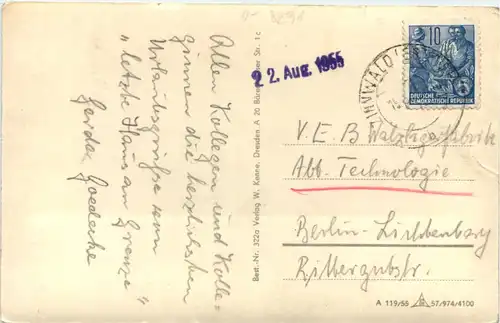 Allen Kollegen und Kolle=
ginnen die herzlichsten
Urlaubsgrüße vom
"letzte Haus an Grenze"
Gerda Goedecke
Best.-Nr. 322a Verlag W. Kunne, Dresden A 20 Str. 1c
22. Aug. 1955
10
DEUTSCHE
DEMOKRATISCHE REPUBLIK
ZINNWALD (ERZGEB)
V. E. B Wälzlagerfabrik
Abt. Technologie
Berlin-Lichtenberg
Rittergutstr.
A 119/55 57/974/4100